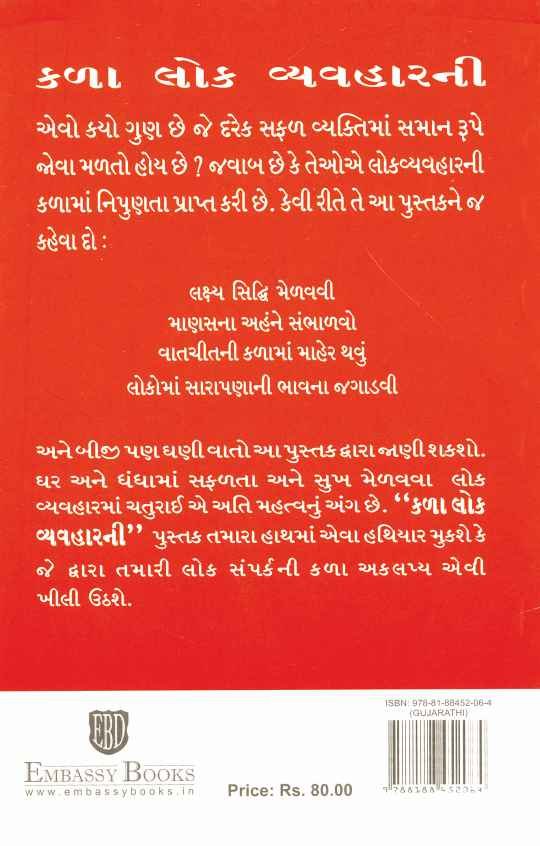 કળા લોક વ્યવહારની
એવો કયો ગુણ છે જે દરેક સફળ વ્યક્તિમાં સમાન રૂપે
જોવા મળતો હોય છે ? જવાબ છે કે તેઓએ લોકવ્યવહારની
કળામાં નિપુણતા પ્રાપ્ત કરી છે. કેવી રીતે તે આ પુસ્તકને જ
કહેવા દો :
લક્ષ્ય સિદ્ધિ મેળવવી
માણસના અહંને સંભાળવો
વાતચીતની કળામાં માહેર થવું
લોકોમાં સારાપણાની ભાવના જગાડવી
અને બીજી પણ ઘણી વાતો આ પુસ્તક દ્વારા જાણી શકશો.
ઘર અને ધંધામાં સફળતા અને સુખ મેળવવા લોક
વ્યવહારમાં ચતુરાઈ એ અતિ મહત્વનું અંગ છે. “કળા લોક
વ્યવહારની” પુસ્તક તમારા હાથમાં એવા હથિયાર મુકશે કે
જે દ્વારા તમારી લોક સંપર્કની કળા અકલપ્ય એવી
ખીલી ઉઠશે.
ISBN: 978-81-88452-06-4
(GUJARATHI)
EBD
EMBASSY BOOKS
www.embassybooks.in
Price: Rs. 80.00
9 788188 452064